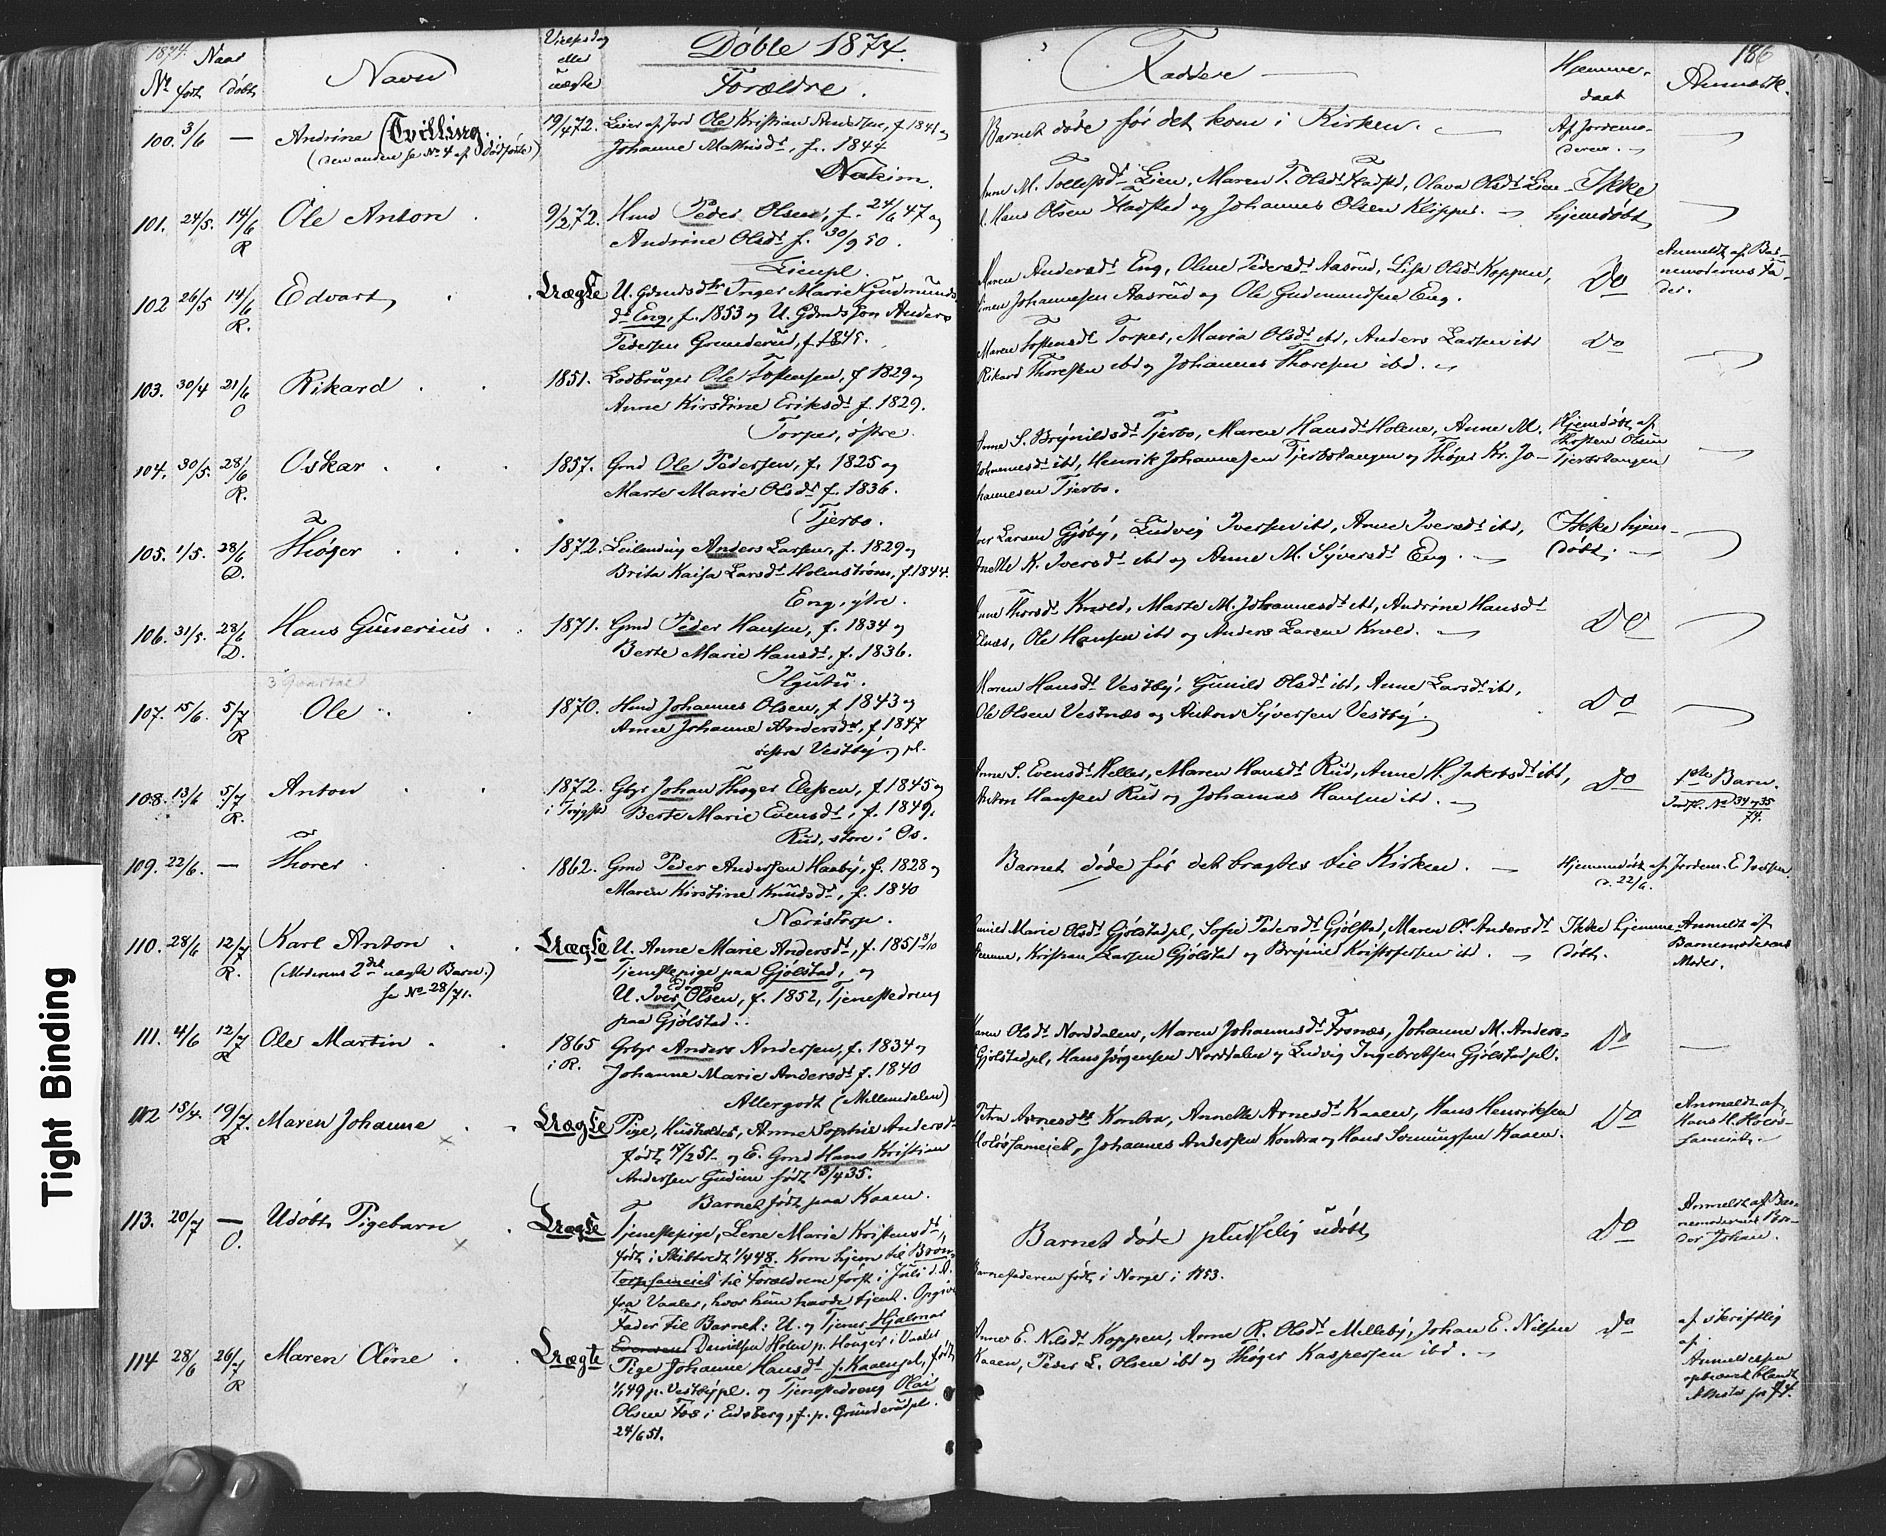 1874. Naar
Nº født døbt
Navn
Vielsesdag
eller
uægte
Døbte 1874.
Forældre.
Faddere
Hjemme-
døbt
186
Anmærk.
100. 3/6 —
Andrine (Tvilling.
(den anden se No 4 af dødfødte)
19/4 72.
Leier af Jord Ole Kristian Andersen, f. 1841 og
Johanne Mathisdt, f. 1844
Barnet døde før det kom i Kirken.
Af Jordemo-
deren.
101. 24/5. 14/6
R
Ole Anton
9/2 72.
Hmd Peder Olsen, f. 24/6 47 og
Andrine Olsdt f. 30/9 50.
Lienpl.
M. Tollefsdt Lien, Maren T. Olsdt Fladstd, Olava Olsdt Lien
Hans Olsen Fladsted og Johannes Olsen Klopper.
Ikke
hjemdøbt
102 26/5 14/6
R.
Edvart
Uægte
U. Gdmdsdtr Inger Marie Gudmunds-
dt Eng, f. 1853 og U. Gdmdssøn Anders
Pedersen Grunderud, f. 1845.
Maren Andersdt Eng, Oline Pedersdt Aasrud, Lisa Olsdt Koppen,
Johannesen Aasrud og Ole Gudmundsen Eng.
Do
Anmeldt af Bar-
nemoderens Fa-
der.
103. 30/4 21/6
O
Rikard
1851.
Lodbruger Ole Tostensen, f. 1829 og
Anne Kirstine Eriksdt f. 1829.
Torper, østre.
Maren Tostensdt Torper, Maria Olsdt ibd, Anders Larsen ibd
Rikard Thoresen ibd og Johannes Thoresen ibd.
Do
104. 30/5. 28/6
R.
Oskar
1857.
Gmd Ole Pedersen, f. 1825 og
Marte Marie Olsdt f. 1836.
Tjerbo.
Anne S. Brynildsdt Tjerbo, Maren Hansdt Holene, Anne M.
Johannesdt ibd, Henrik Johannesen Tjerbotangen og Thøger Kr. Jo-
hannesen Tjerbo.
Hjemdøbt af
Thosten Olsen
Tjerbotangen
105. 1/5. 28/6
D.
Thøger
1872.
Leilending Anders Larsen, f. 1829 og
Brita Kaisa Larsdt Holmstrøm, f. 1844.
Eng, ytre.
Larsen Gjøby, Ludvig Iversen ibd, Anne Iversdt ibd,
Anette K. Iversdt ibd og Anne M. Syversdt Eng.
Ikke hjem-
døbt.
106. 31/5. 28/6
D.
Hans Gunerius
1871.
Gmd Peder Hansen, f. 1834 og
Berte Marie Hansdt, f. 1836.
Anne Thorsdt Knold, Marte M. Johannesdt ibd, Andrine Hansdt
Ole Hansen ibd og Anders Larsen Knold.
Do
3 Quartal
107. 15/6. 5/7
R
Ole
1870.
Hmd Johannes Olsen, f. 1843 og
Anne Johanne Andersdt, f 1847
østre Vestby pl.
Maren Hansdt Vestby, Gunild Olsdt ibd, Anne Larsdt ibd,
Ole Olsen Vestnæs og Anton Syversen Vestby.
Do
108. 13/6 5/7
R.
Anton
1872.
i Trygstd
Gbgr Johan Thøger Elefsen, f. 1845 og
Berte Marie Evensdt, f. 1849.
Rud, store i Os.
Anne S. Evensdt Heller, Maren Hansdt Rud, Anne H. Jakobsdt ibd,
Anton Hansen Rud og Johannes Hansen ibd.
Do
1ste Barn.
No 34 og 35
74.
109. 22/6. —
Thorer
1862.
Gmd Peder Andersen Haaby, f. 1828 og
Maren Kirstine Knudsdt, f. 1840
Næristorp.
Barnet døde før det bragtes til Kirken.
Hjemmedøbt af Jordem. E. Iversen
d. 22/6.
110. 28/6 12/7
R.
Karl Anton
(Moderens 2det uægte Barn.)
se No 28/71.
Uægte
U. Anne Marie Andersdt, f. 1851 3/10
Tjenestepige paa Gjølstad, og
U. Iver Olsen, f. 1852, Tjenestedreng
paa Gjølstad.
Marie Olsdt Gjølstadpl, Sofie Pedersdt Gjølstad, Maren O. Andersdt
Kristian Larsen Gjølstad og Brynil Kristofersen ibd.
Ikke hjemme-
døbt.
Anmeldt af
Barnemoderens
Moder.
111. 4/6 12/7
R
Ole Martin
1865
i R.
Grbgr Anders Andersen, f. 1834 og
Johanne Marie Andersdt f. 1840
Allergodt (Mellemdalen)
Maren Olsdt Norddalen, Maren Johannesdt Fosnæs, Johanne M. Anders-
Gjølstadpl, Hans Jørgensen Norddalen og Ludvig Ingebretsen Gjølstadpl.
Do
112 15/4. 19/7
R
Maren Johanne
Uægte
Pige, Husholder, Anne Sophie Andersdt
født 17/2 51 og E. Gmd Hans Kristian
Andersen Gudim født 13/4 35.
Barnet født paa Kaaen.
Petra Arnesdt Kontra, Annette Arnesdt Kaaen, Hans Henriksen
Johannes Andersen Kontra og Hans Semingsen Kaaen.
Do
Anmeldt af
Hans H. Hovs-
sameiet.
113. 20/7 —
O.
Udøbt Pigebarn
Uægte
Tjenestepige, Lene Marie Kristensdt,
født i Skibtvedt 1/4 48. Kom hjem til Bron-
torpsameiet til Forældrene først i Juli d. A.
fra Vaaler, hvor hun havde tjent. Opgiver
Fader til Barnet: U. og Tjener Hjalmar
Evensen Danielsen Holm p. Houger i Vaaler
Barnet døde pludselig udøbt
Barnefaderen født i Norge i 1853.
Do
Anmeldt af Bar-
nemoderens Bro-
der Johan.
114 28/6 26/7
R
Maren Oline
Uægte
Pige Johanne Hansdt p. Kaaenpl, født
1/1 49 p. Vestbypl. og Tjenestedreng Olai
Olsen Fos i Eidsberg, f. p. Grunderudpl.
24/6 51.
Anne E. Nilsdt Koppen, Anne R. Olsdt Milleby, Johan E. Nilsen
Kaaen, Peder L. Olsen ibd og Thøger Kaspersen ibd.
Do
af skriftlig
af
Anmeldelsen
opbevaret blandt
Attester for 74.
Tight Binding